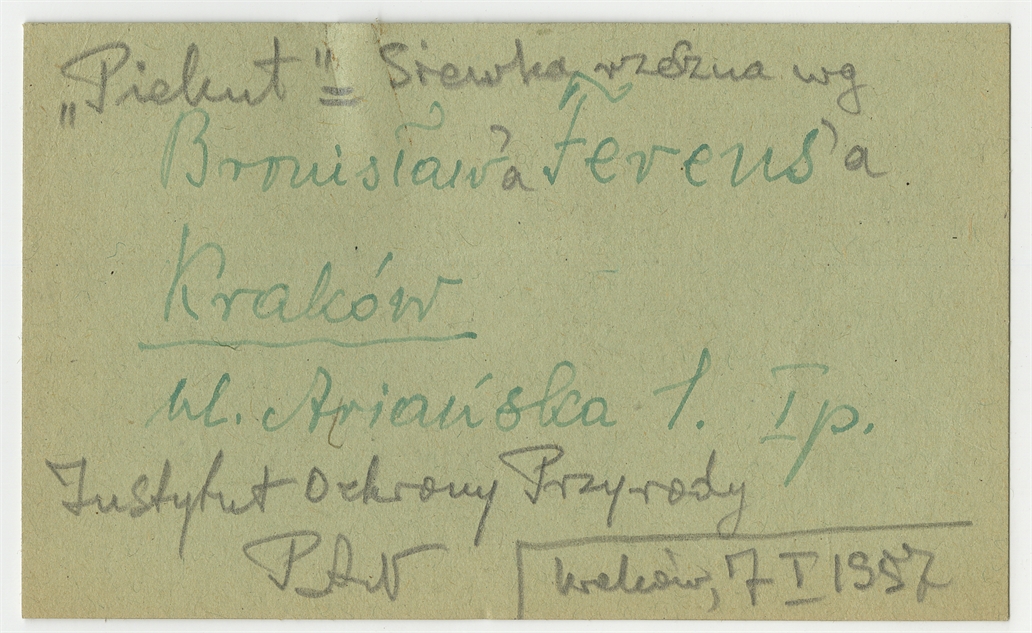 „Piekut" = Siewka rzeczna wg
Bronisław'a Ferens'a
Kraków
ul. Ariańska 1. I p.
Instytut Ochrony Przyrody
PAN
Kraków, 7 I 1957